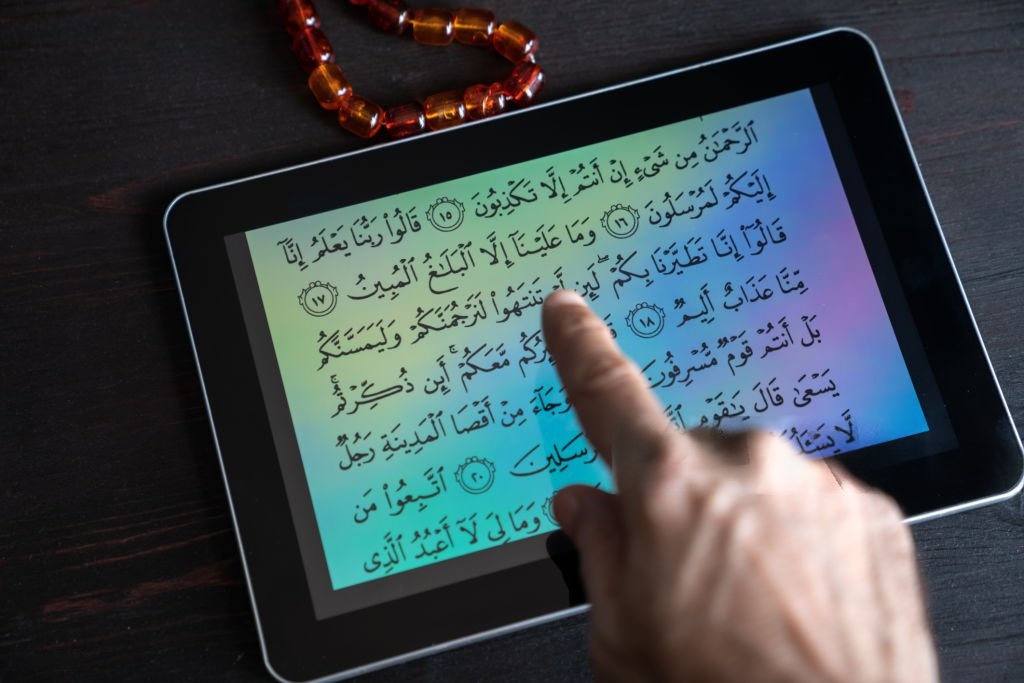 ٱلرَّحْمَٰنُ مِن شَىْءٍ إِنْ أَنتُمْ إِلَّا تَكْذِبُونَ ١٥ قَالُوا۟ رَبُّنَا يَعْلَمُ إِنَّآ
إِلَيْكُمْ لَمُرْسَلُونَ ١٦ وَمَا عَلَيْنَآ إِلَّا ٱلْبَلَٰغُ ٱلْمُبِينُ ١٧
قَالُوٓا۟ إِنَّا تَطَيَّرْنَا بِكُمْ ۖ لَئِن تَنتَهُوا۟ لَنَرْجُمَنَّكُمْ وَلَيَمَسَّنَّكُم
مِّنَّا عَذَابٌ أَلِيمٌ ١٨ مَّعَكُمْ ۚ أَئِن ذُكِّرْتُم ۚ
بَلْ أَنتُمْ قَوْمٌ مُّسْرِفُونَ وَجَآءَ مِنْ أَقْصَا ٱلْمَدِينَةِ رَجُلٌ
يَسْعَىٰ قَالَ يَٰقَوْمِ ٢٠ ٱتَّبِعُوا۟ مَن
لَّا وَمَا لِىَ لَآ أَعْبُدُ ٱلَّذِى